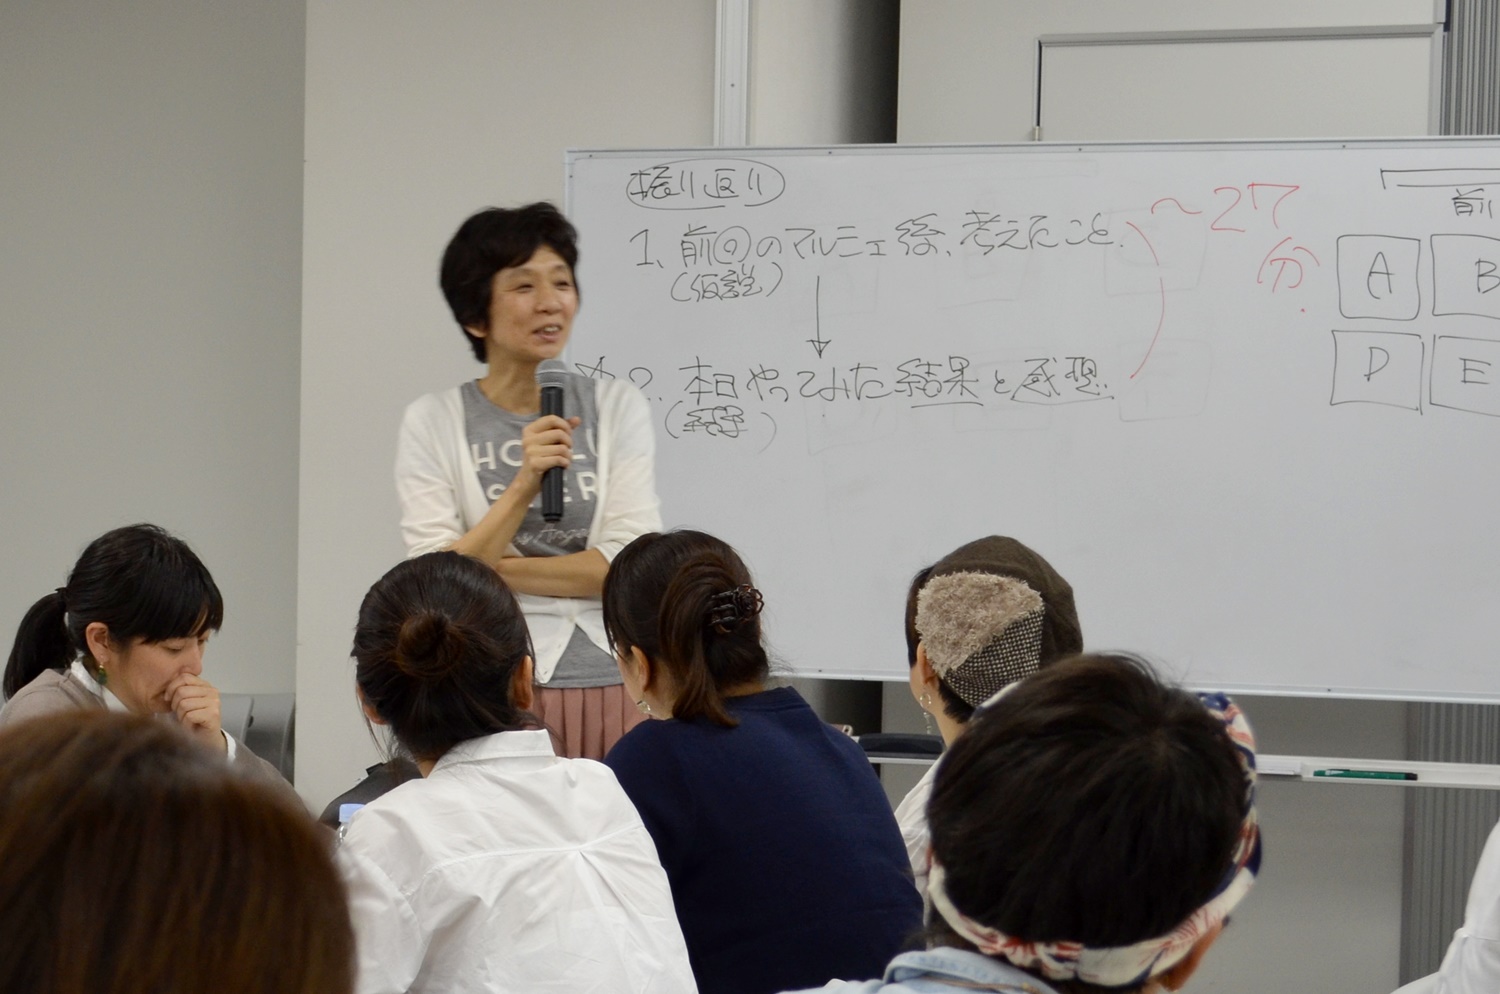 振り返り
1、前回のマルシェ後、考えたこと、
(仮説)
2. 本日やってみた結果と感想.
〜27
分.
前
A B
D E